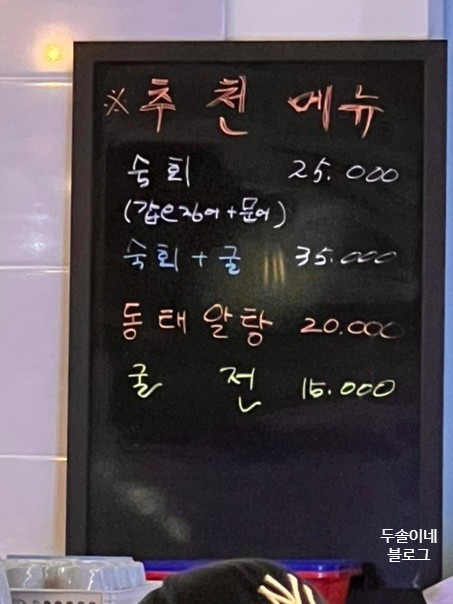 ※추천 메뉴
숙회 25.000
(갑오징어+문어)
숙회+굴 35.000
동태알탕 20.000
굴전 15.000
두솔이네
블로그